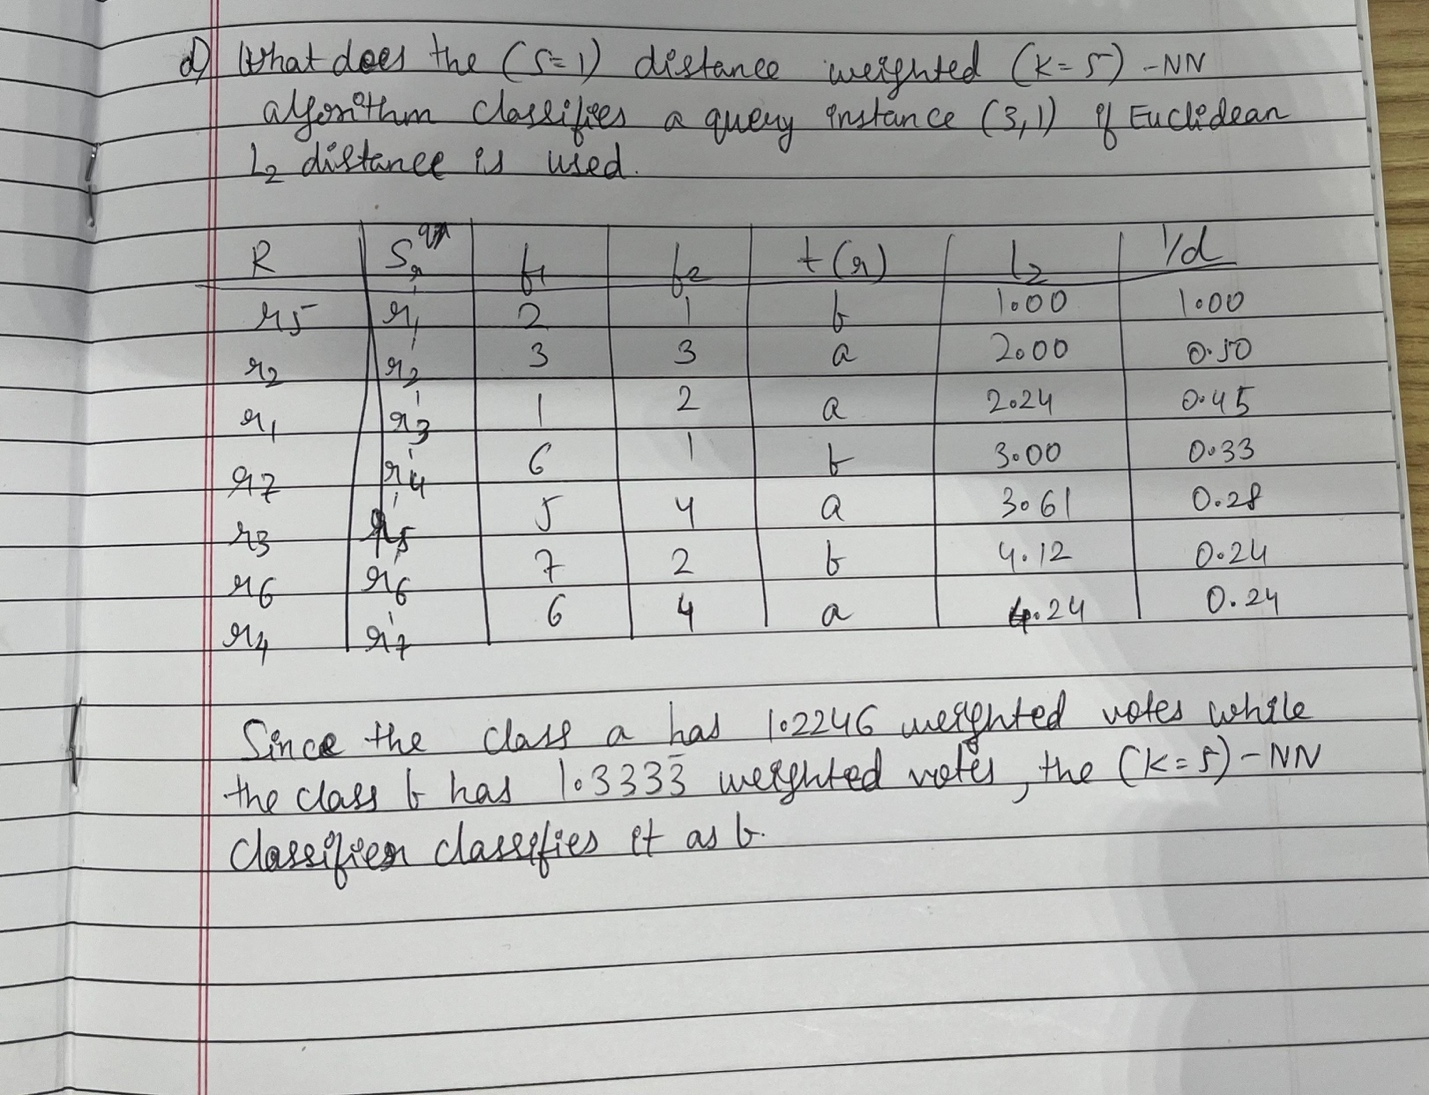 d) What does the (S=1) distance weighted (K=5)-NN
algorithm classifies a query instance (3,1) if Euclidean
L2 distance is used.
R f1 f2 t(r) L2 1/d
r5 r1' 2 1 b 1.00 1.00
r2 r2' 3 3 a 2.00 0.50
r1 r3' 1 2 a 2.24 0.45
r7 r4' 6 1 b 3.00 0.33
r3 r5' 5 4 a 3.61 0.28
r6 r6' 7 2 b 4.12 0.24
r4 r7' 6 4 a 4.24 0.24
Since the class a has 1.2246 weighted votes while
the class b has 1.3333̄ weighted votes, the (K=5)-NN
classifier classifies it as b.